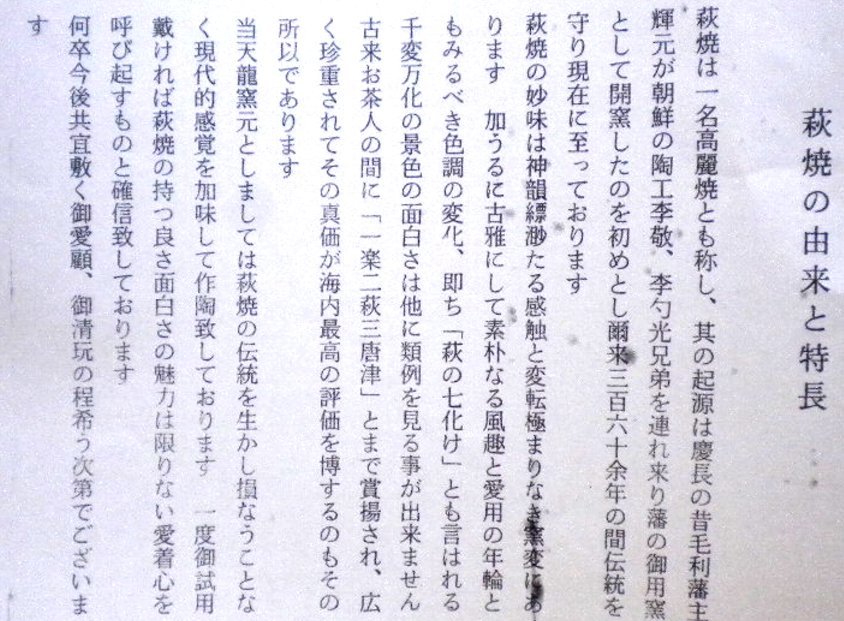 萩焼の由来と特長
萩焼は一名高麗焼とも称し、其の起源は慶長の昔毛利藩主
輝元が朝鮮の陶工李敬、李勺光兄弟を連れ来り藩の御用窯
として開窯したのを初めとし爾来三百六十余年の間伝統を
守り現在に至っております
萩焼の妙味は神韻縹渺たる感触と変転極まりなき窯変にあ
ります　加うるに古雅にして素朴なる風趣と愛用の年輪と
もみるべき色調の変化、即ち「萩の七化け」とも言はれる
千変万化の景色の面白さは他に類例を見る事が出来ません
古来お茶人の間に「一楽二萩三唐津」とまで賞揚され、広
く珍重されてその真価が海内最高の評価を博するのもその
所以であります
当天龍窯元としましては萩焼の伝統を生かし損なうことな
く現代的感覚を加味して作陶致しております　一度御試用
戴ければ萩焼の持つ良さ面白さの魅力は限りない愛着心を
呼び起すものと確信致しております
何卒今後共宜敷く御愛顧、御清玩の程希う次第でございま
す